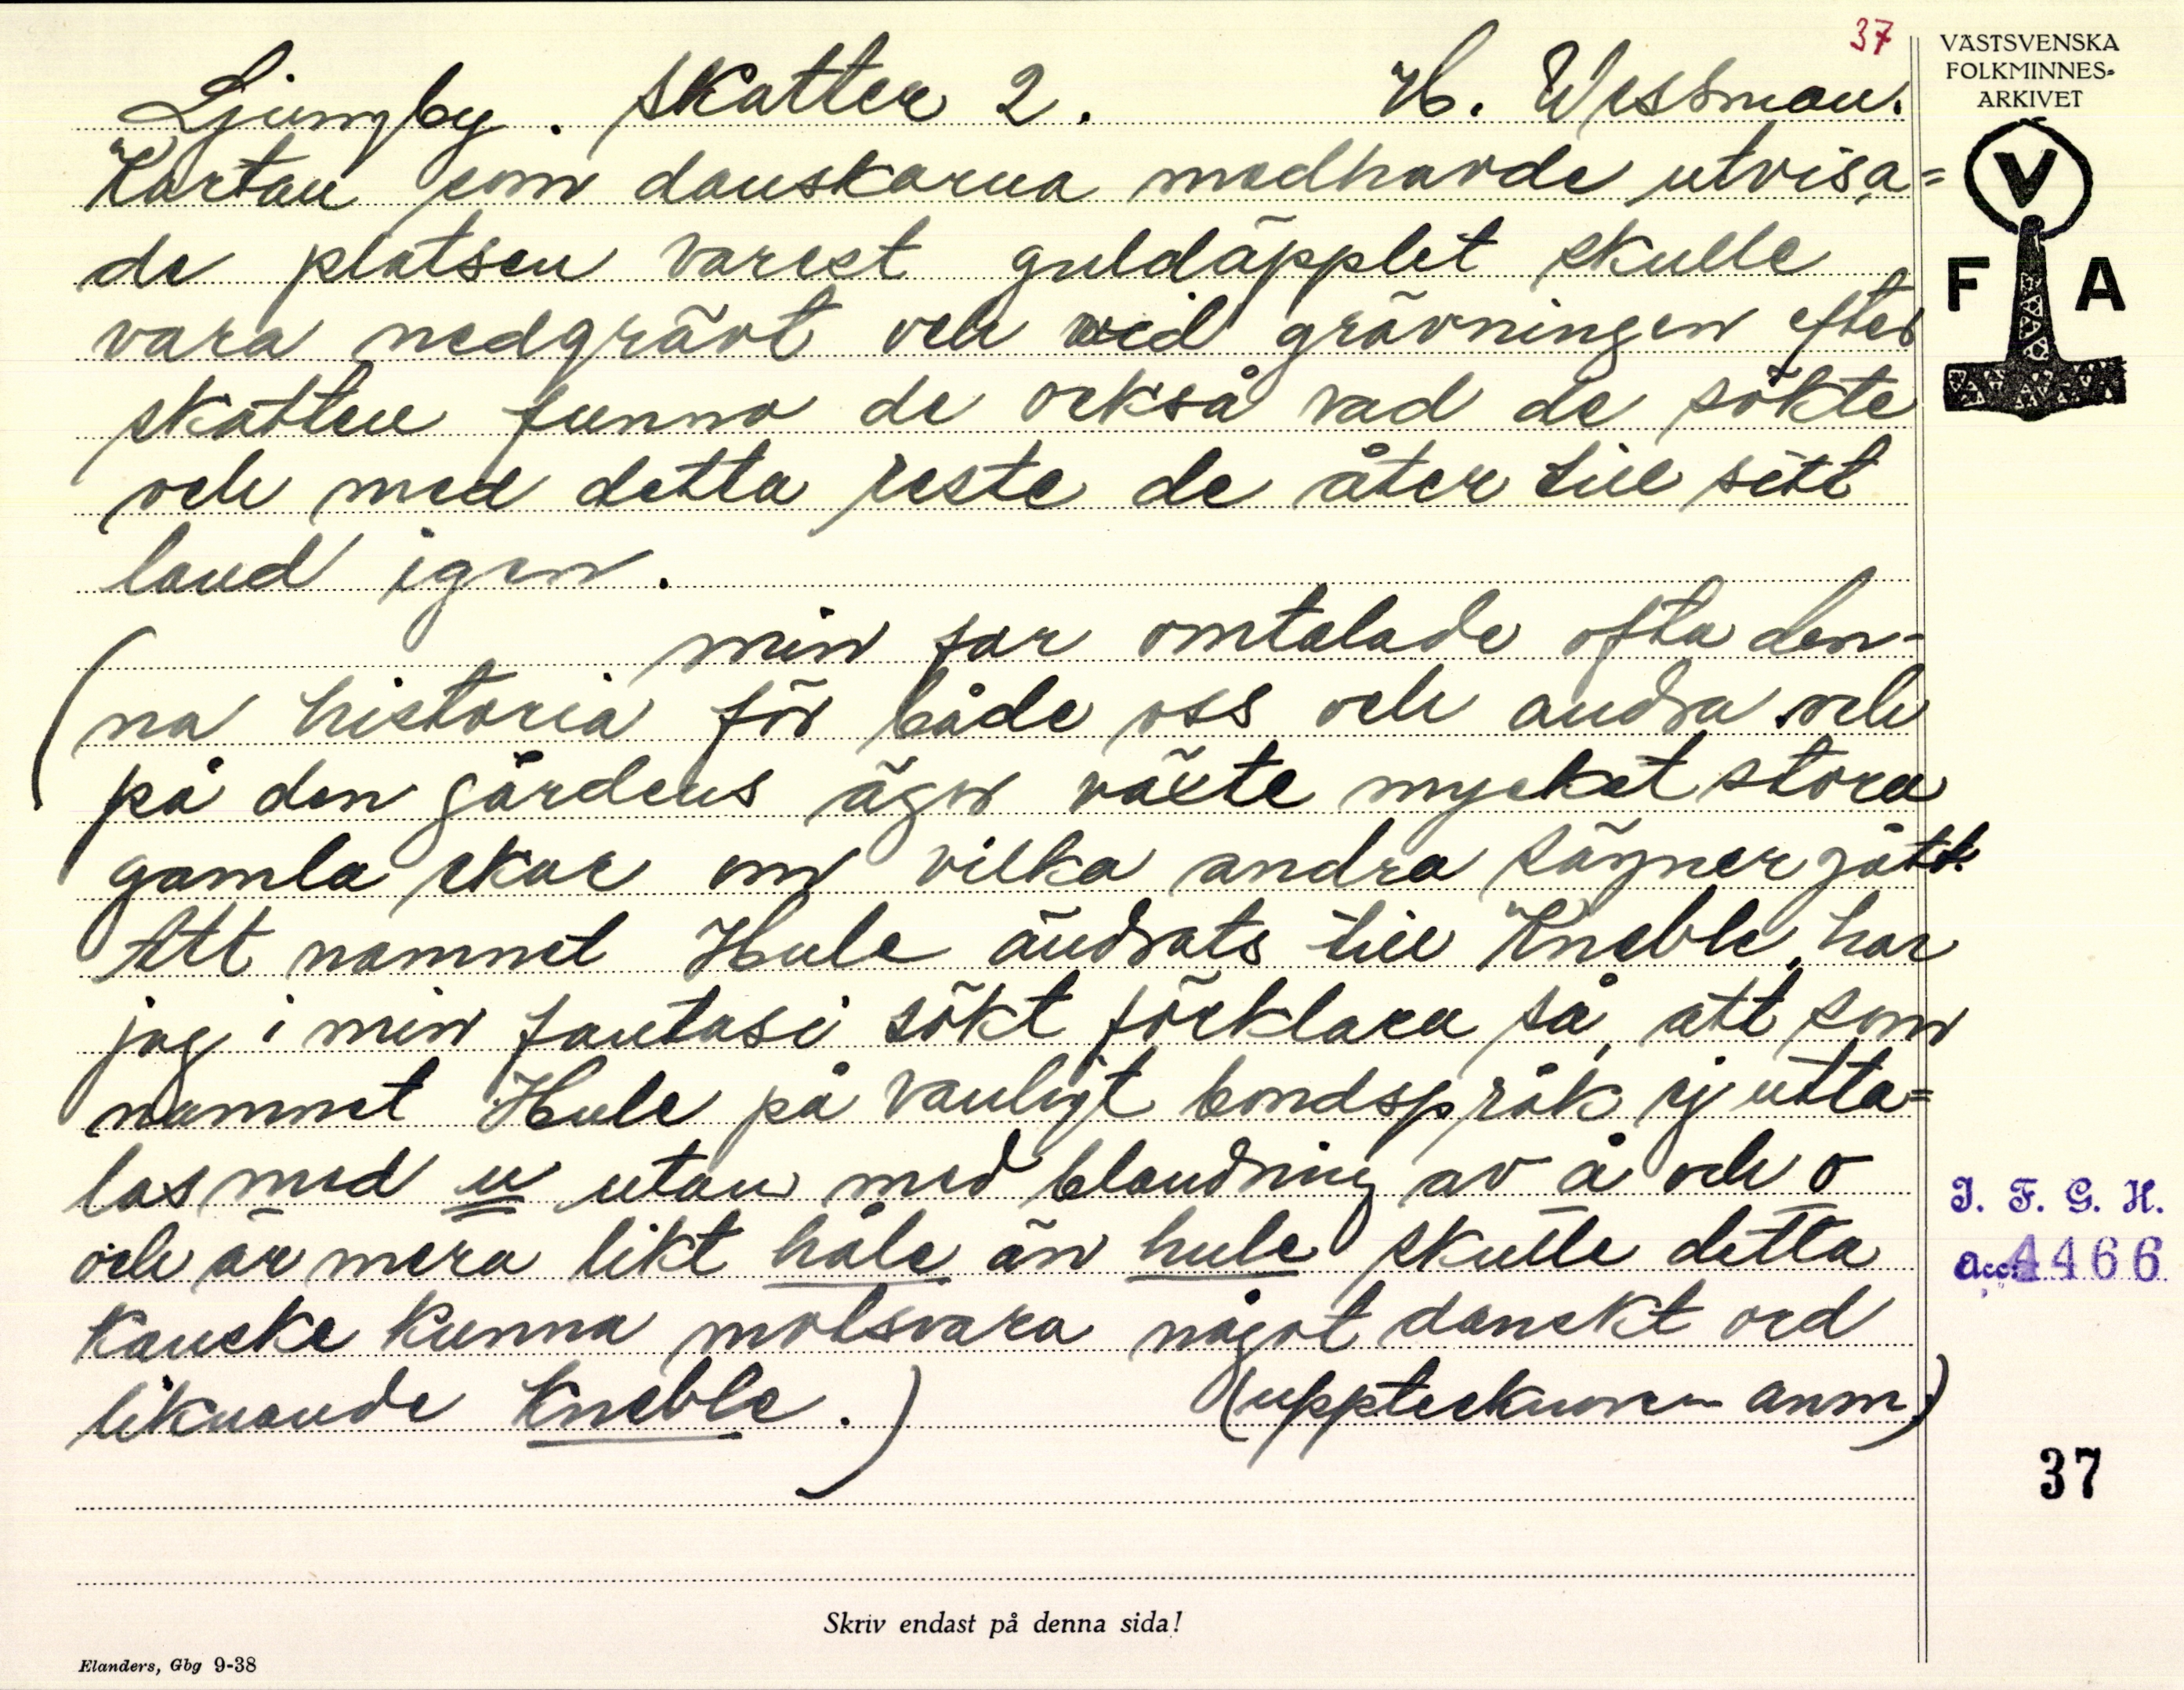 37
Ljungby. Skatter 2. H. Wessman.
Kartan som danskarna medhavde utvisa=
de platsen varest guldäpplet skulle
vara nedgrävt och vid grävningen efter
skatten funno de också vad de sökte
och med detta reste de åter till sitt
land igen.
(min far omtalade ofta den-
na historia för både oss och andra och
på den gårdens ägor växte mycket stora
gamla ekar om vilka andra sägner gått.
Att namnet Hule ändrats till Kneble, har
jag i min fantasi sökt förklara så, att som
namnet Hule på vanligt bondspråk ej utta=
las med u utan med blandning av å och o
och är mera likt håle än hule skulle detta
kanske kunna motsvara något danskt ord
liknande Kneble.) (upptecknaren anm)
VÄSTSVENSKA
FOLKMINNES-
ARKIVET
V
F A
I. F. G. H.
Acc. 4466
37
Skriv endast på denna sida!
Elanders, Gbg 9-38